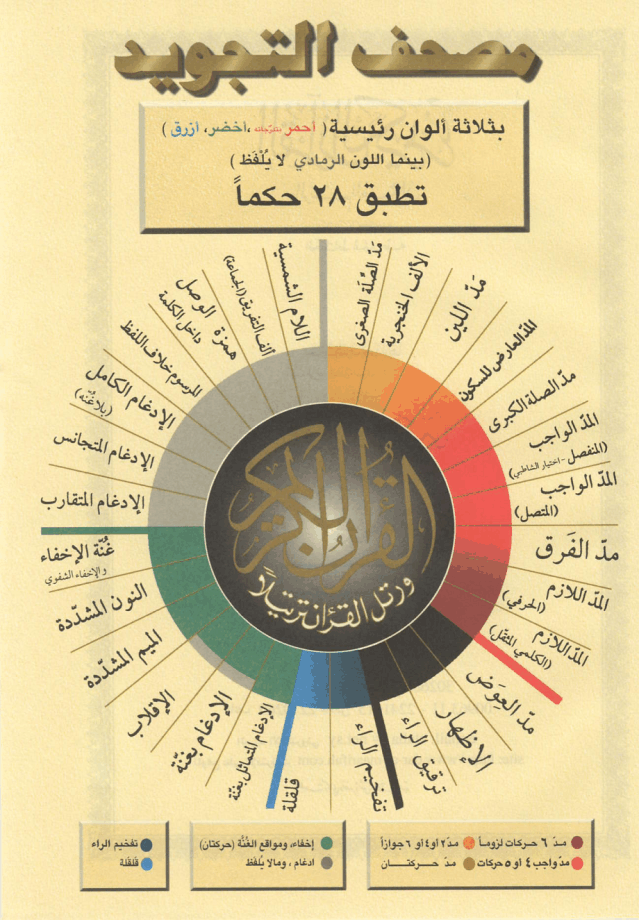 مصحف التجويد
بثلاثة ألوان رئيسية ( أحمر بتدرّجاته ، أخضر، أزرق )
(بينما اللون الرمادي لا يُلْفَظ )
تطبق ٢٨ حكماً
مَدّ الصِّلَة الصغرى
الألف الخنجرية
مَدّ اللين
المدّ العارض للسكون
مدّ الصلة الكبرى
المدّ الواجب
(المنفصل - اختيار الشاطبي)
المدّ الواجب
(المتصل)
مدّ الفَرق
المدّ اللازم
(الحرفي)
المدّ اللازم
(الكلمي المثقّل)
مدّ العِوَض
الإظهار
ترقيق الراء
تفخيم الراء
قلقلة
الإدغام المتماثل بغنّة
الإدغام بغنّة
الإقلاب
الميم المشدّدة
النون المشدّدة
غُنّة الإخفاء
والإخفاء الشفوي
الإدغام المتقارب
الإدغام المتجانس
الإدغام الكامل
(بلا غُنّه)
المرسوم خلاف اللفظ
همزة الوصل
داخل الكلمة
ألف التفريق (الجماعة)
اللام الشمسية
القرآن الكريم
ورتل القرآن ترتيلاً
مدّ ٦ حركات لزوماً
مدّ ٢ أو ٤ أو ٦ جوازاً
مدّ واجب ٤ أو ٥ حركات
مدّ حـــركتــان
إخفاء، ومواقع الغُنَّة (حركتان)
ادغام ، ومالا يُلفَظ
تفخيم الراء
قلقلة